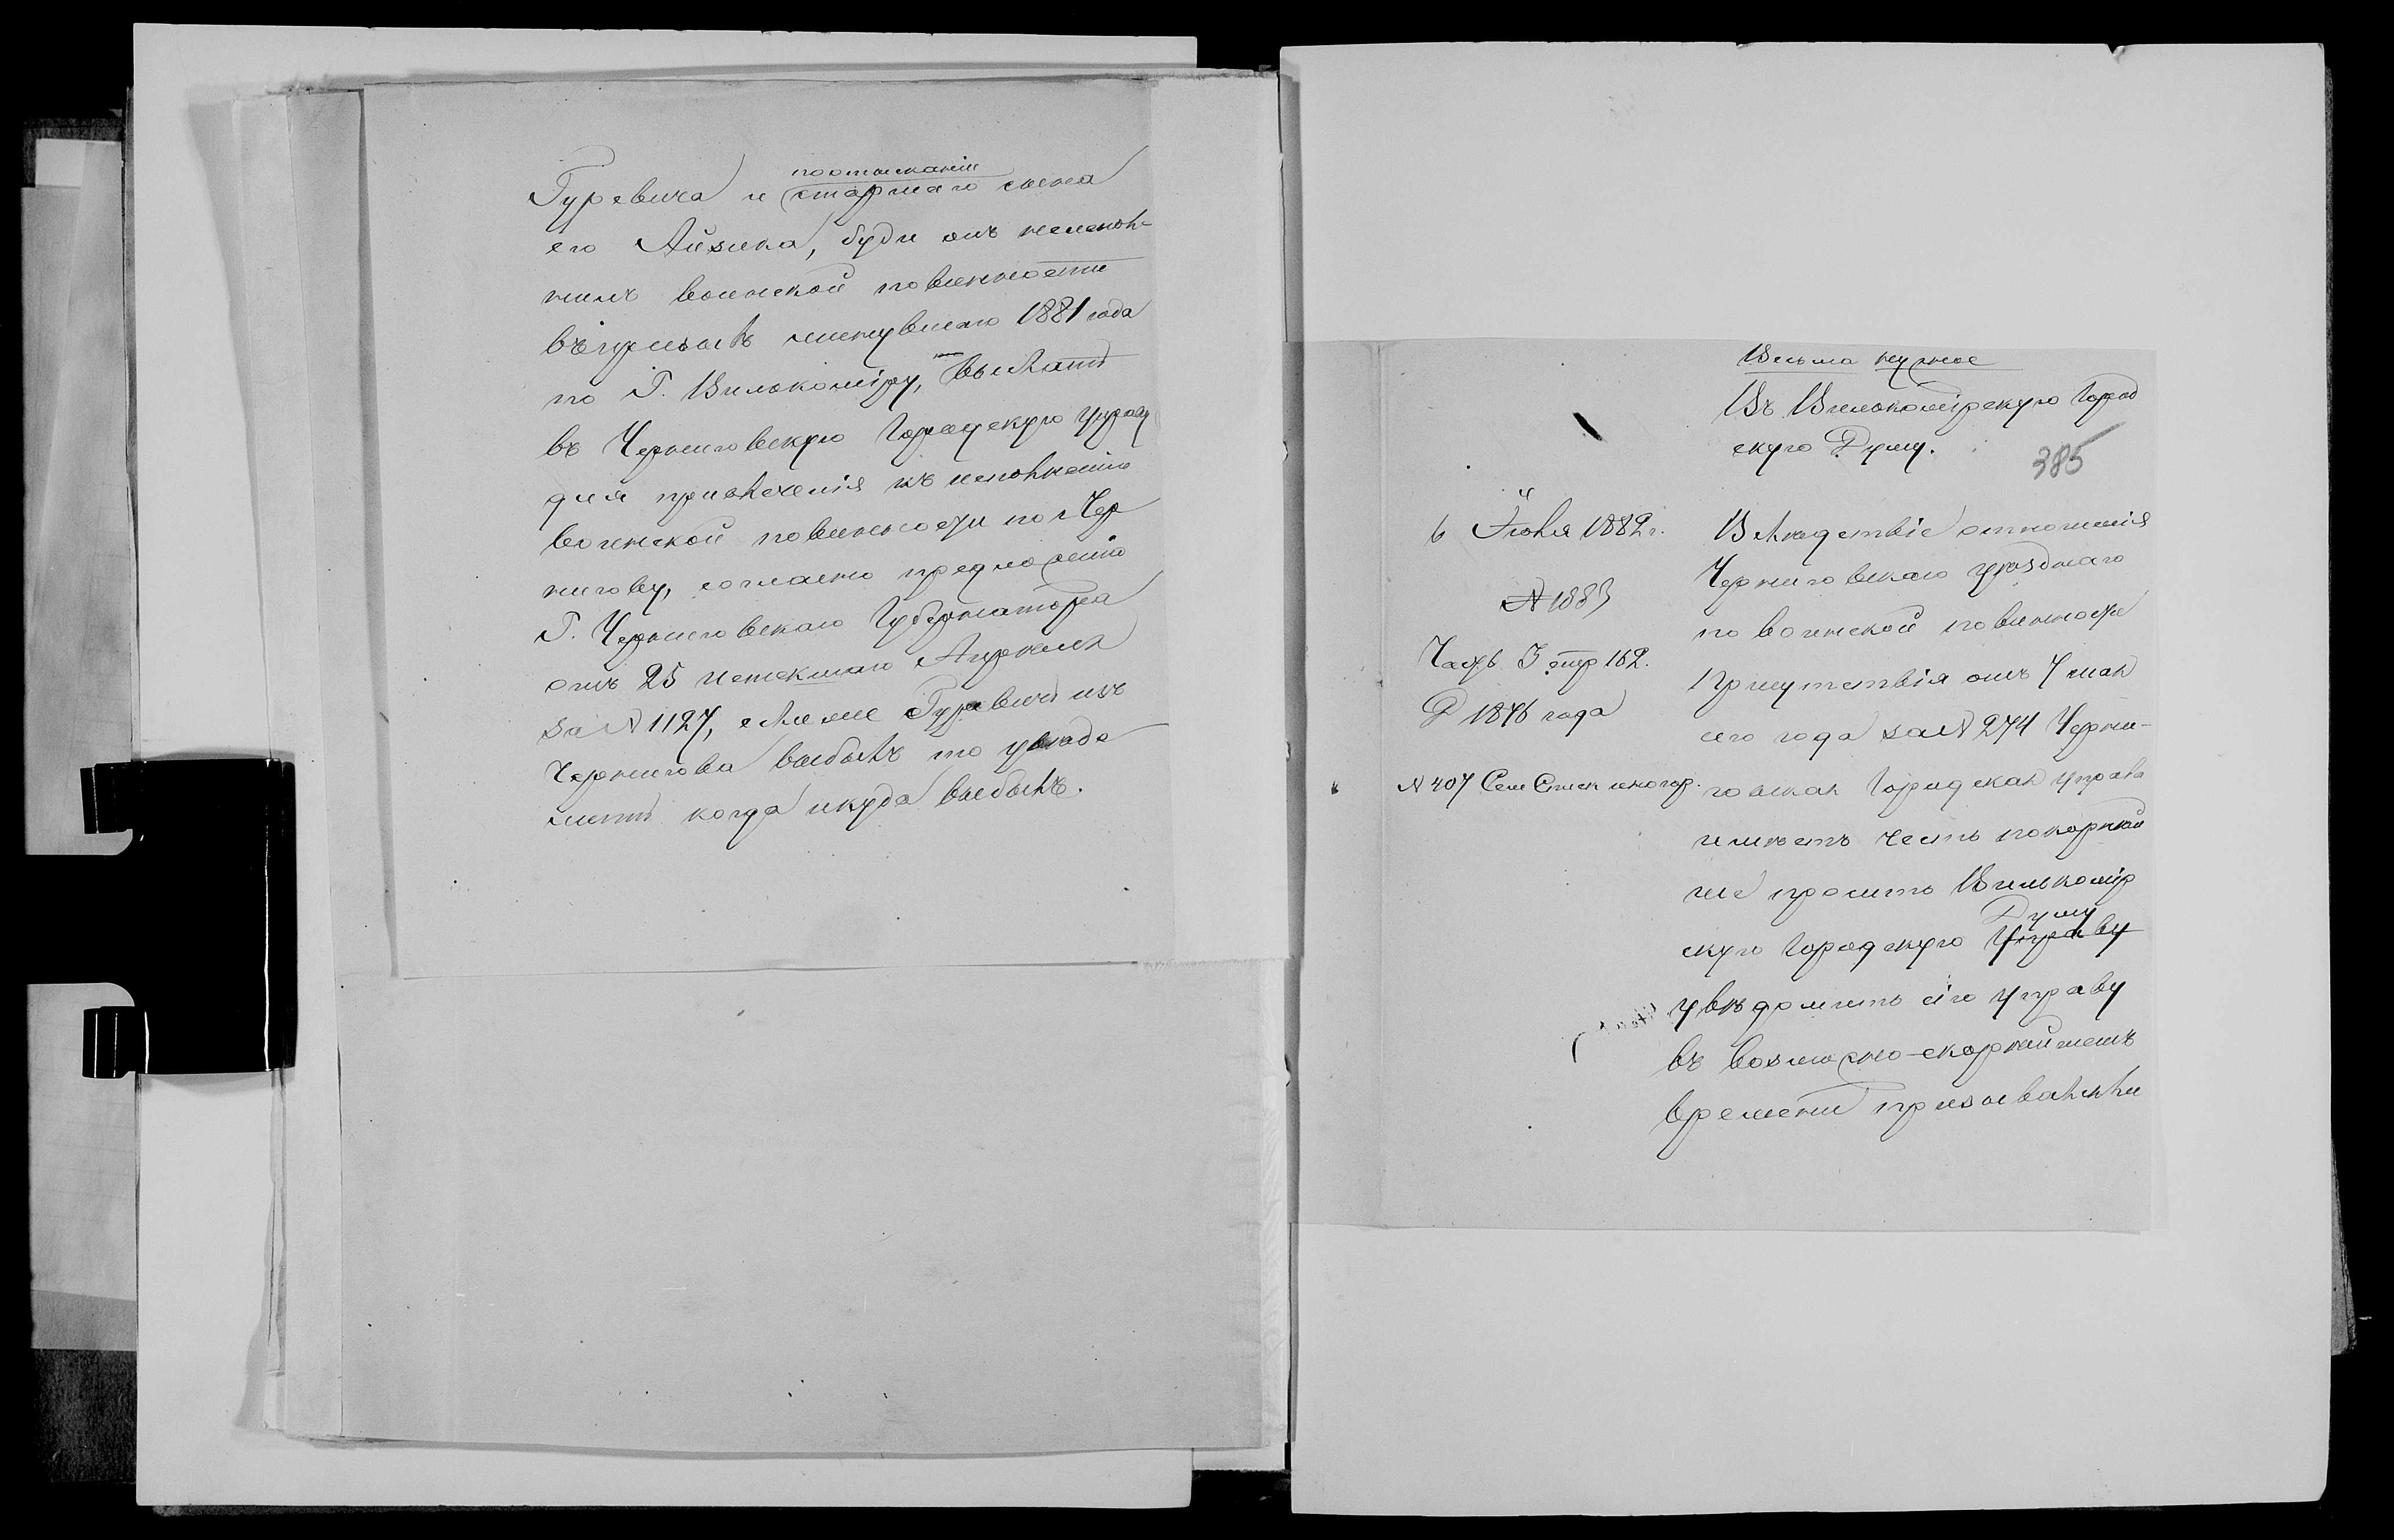 Гуревича и старшаго сына
по отысканіи
его Айзика, буди онъ неиспол-
нилъ воинской повинности
въ призывъ минувшаго 1881 года
по Г. Вилькоміру, выслать
въ Черниговскую Городскую Управу
для привлеченія къ исполненію
воинской повинности по Чер
нигову, согласно предложенію
Г. Черниговскаго Губернатора
отъ 25 истекшаго Апреля
за № 1127, если же Гуревичъ изъ
Чернигова выбылъ то уведо
мить когда и куда выбылъ.
Весьма нужное
Въ Вилькомірскую Город
скую Думу.
385
6 Іюля 1882 г.
№ 1883
Часть 3 стр 182.
Д 1876 года
№ 407 Сем Списк иногор.
Вследствіе отношенія
Черниговскаго уезднаго
по воинской повинности
Присутствія отъ 7 мая
сего года за № 274 Черни-
говская Городская Управа
имеетъ честь покорней
ше просить Вилькомір
скую Городскую Управу
Думу
уведомить сію управу
въ возможно-скорейшемъ
времени призывались ли